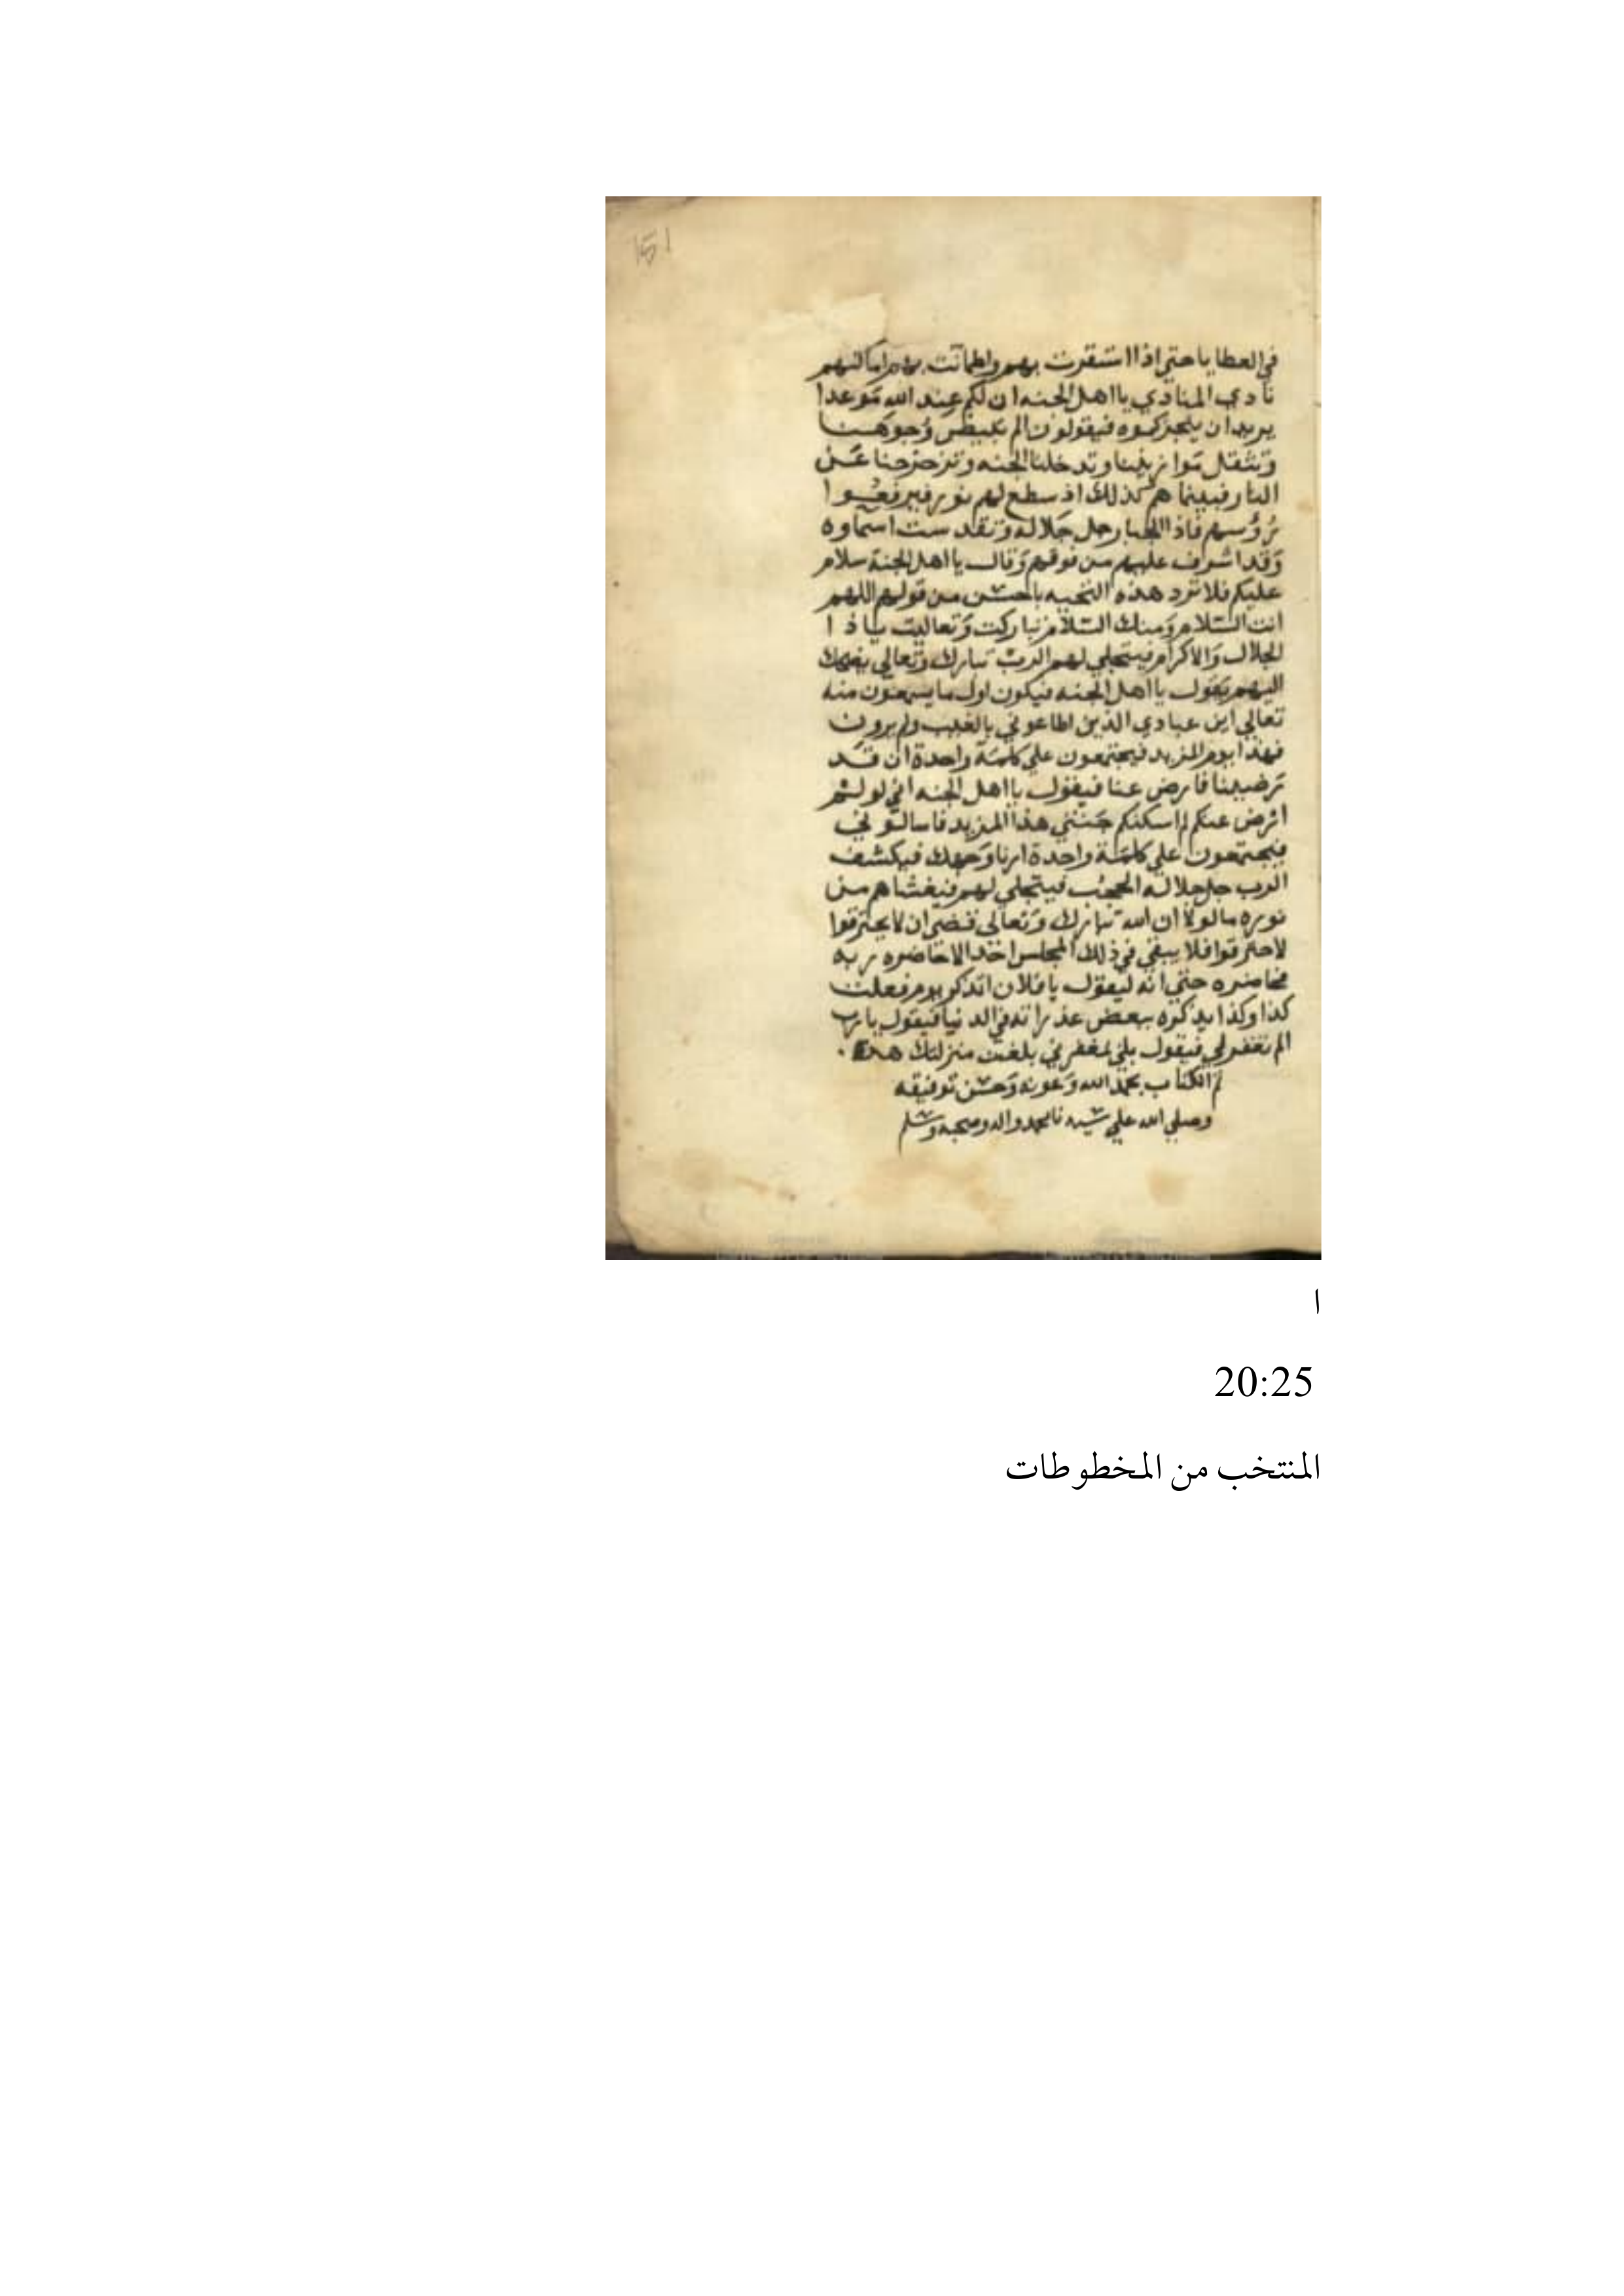 151
في العطايا حتي اذا استقرت بهم واطمانت بهم اماكنهم
نادي المنادي يا اهل الجنه ان لكم عند الله موعدا
يريد ان ينجزكموه فيقولون الم يبيض وجوهنا
وتثقل موازيننا وتدخلنا الجنه وتزحزحنا عن
النار فبينما هم كذلك اذ سطع لهم نور فيرفعوا
رؤسهم فاذا الجبار جل جلاله وتقدست اسماوه
وقد اشرف عليهم من فوقهم وقال يا اهل الجنة سلام
عليكم فلا ترد هذه التحيه باحسن من قولهم اللهم
انت السلام ومنك السلام تباركت وتعاليت يا ذا
الجلال والاكرام فيتجلي لهم الرب تبارك وتعالي يضحك
اليهم يقول يا اهل الجنه فيكون اول ما يسمعون منه
تعالي اين عبادي الذين اطاعوني بالغيب ولم يرون
فهذا يوم المزيد فيجتمعون علي كلمة واحدة ان قد
رضينا فارض عنا فيقول يا اهل الجنه اني لو لم
ارض عنكم لم اسكنكم جنتي هذا المزيد فاسالوني
فيجتمعون علي كلمة واحدة ارنا وجهك فيكشف
الرب جل جلاله الحجب فيتجلي لهم فيغشاهم من
نوره ما لولا ان الله تبارك وتعالي قضي ان لا يحترقوا
لاحترقوا فلا يبقي في ذلك المجلس احد الا حاضره ربه
محاضره حتي انه ليقول يا فلان اتذكر يوم فعلت
كذا وكذا يذكره ببعض عذراته في الدنيا فيقول يا رب
الم تغفر لي فيقول بلي بمغفرتي بلغت منزلتك هذه
تم الكتاب بحمد الله وعونه وحسن توفيقه
وصلي الله علي سيدنا محمد واله وصحبه وسلم
ا
20:25
المنتخب من المخطوطات